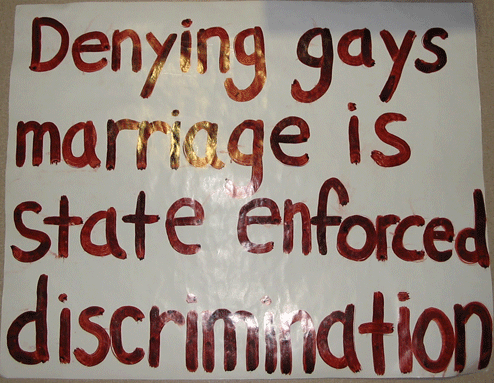 Denying gays
marriage is
state enforced
discrimination